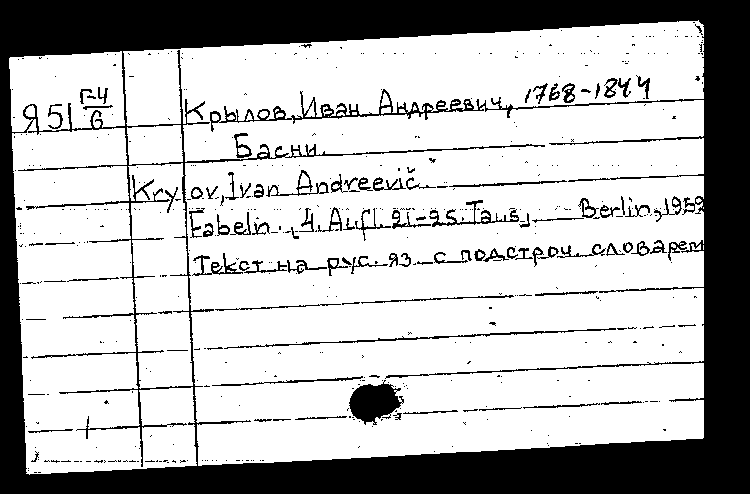 Я51 Г-4/6
Крылов, Иван Андреевич, 1768-1844
Басни.
Krylov, Ivan Andreevič.
Fabeln. [4. Aufl. 21-25. Taus]. Berlin, 1952
Текст на рус. яз. с подстроч. словарем
1